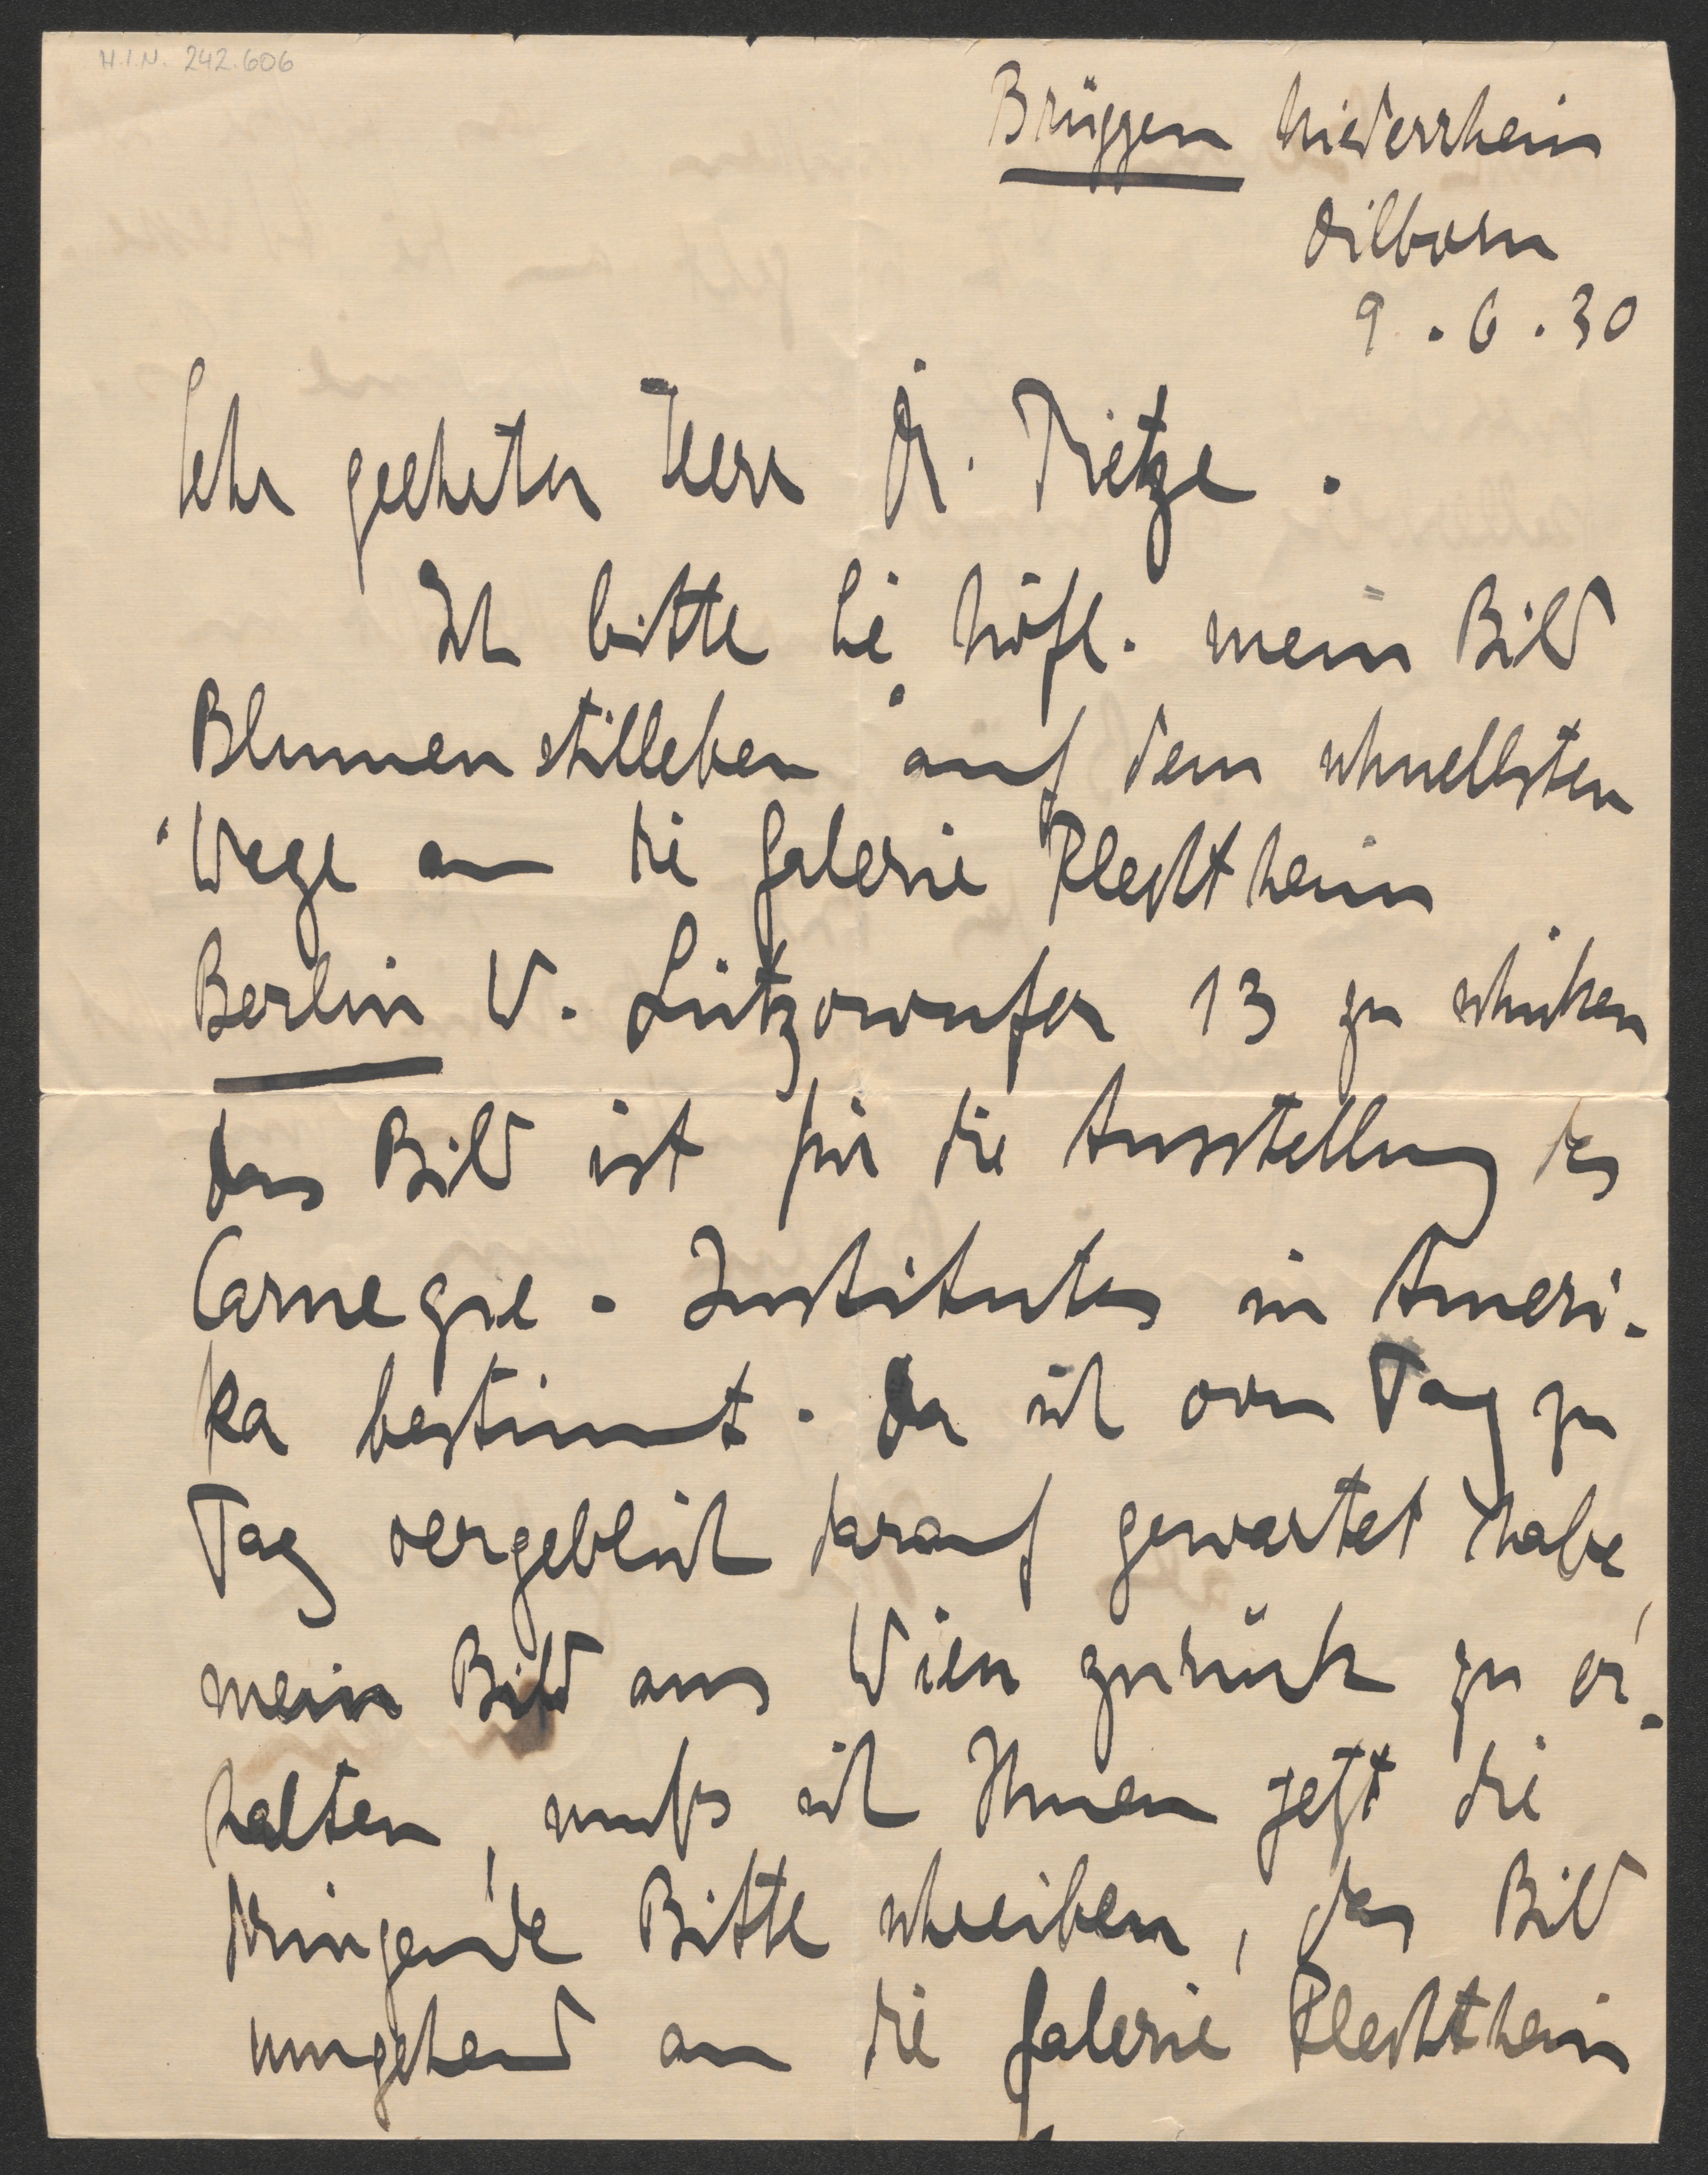 H.I.N. 242.606
Brüggen Niederrhein
Dilborn
9.6.30
Sehr geehrter Herr Dr. Tietze.
Ich bitte Sie höfl. mein Bild
Blumenstilleben auf dem schnellsten
Wege an die Galerie Flechtheim
Berlin W. Lützowufer 13 zu schicken
das Bild ist für die Ausstellung des
Carnegie-Institutes in Ameri-
ka bestimmt. Da ich von Tag zu
Tag vergeblich darauf gewartet habe,
mein Bild aus Wien zurück zu er-
halten, muß ich Ihnen jetzt die
dringende Bitte schreiben, das Bild
umgehend an die Galerie Flechtheim